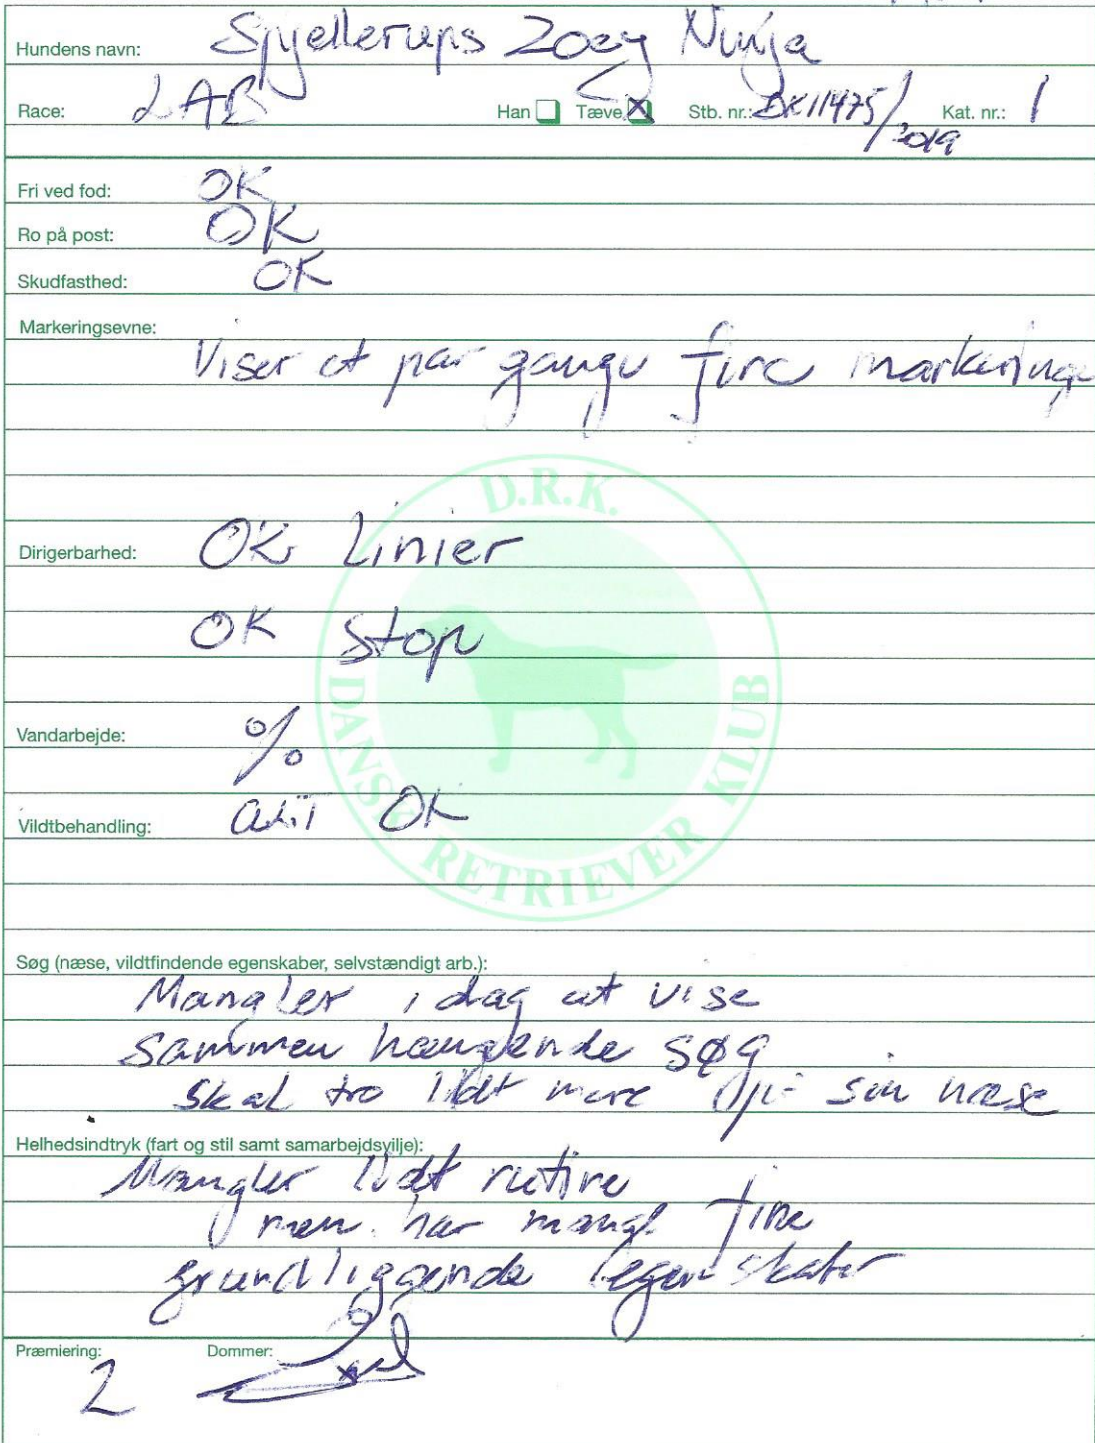 Hundens navn: Spjellerups Zoey Ninja
Race: LAB Han Tæve X Stb. nr.: DK11475/2019 Kat. nr.: 1
Fri ved fod: OK
Ro på post: OK
Skudfasthed: OK
Markeringsevne:
Viser et par gange fine markeringe
D.R.K.
DANSK RETRIEVER KLUB
Dirigerbarhed: OK Linier
OK Stop
Vandarbejde: %
Vildtbehandling: OK
Søg (næse, vildtfindende egenskaber, selvstændigt arb.):
Mangler i dag at vise
sammen hængende søg
skal tro lidt mere på sin næse
Helhedsindtryk (fart og stil samt samarbejdsvilje):
Mangler lidt rutine
men har mange fine
grundliggende egenskaber
Præmiering: 2 Dommer: